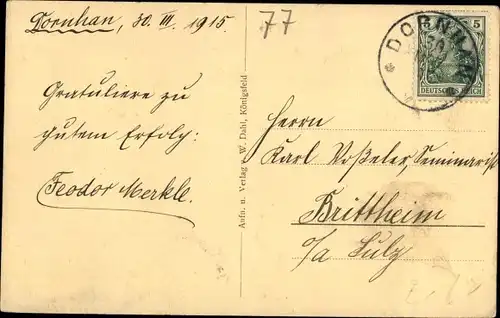 Dornhan, 30. III. 1915.
77
Gratuliere zu
gutem Erfolg:
Feodor Merkle.
Aufn. u. Verlag W. Dahl, Königsfeld
* DORNHAN
5
DEUTSCHES REICH
Herrn
Karl Voßeler, Seminarist
Brittheim
o/a Sulz